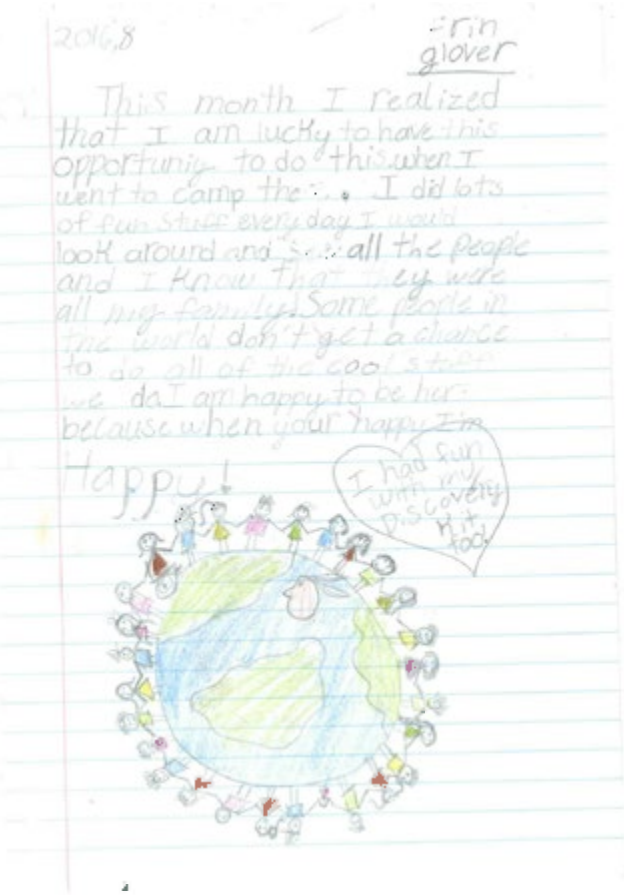 2016,8
glover
This month I realized
that I am lucky to have this
opportuniy to do this when I
went to camp the I did lots
of fun stuff every day I would
look around and all the people
and I know that they were
all my family! Some people in
the world don't get a chance
to do all of the cool stuff
we do I am happy to be her
because when your happy I'm
Happy!
I had fun
with my
Discovery
kit
too!